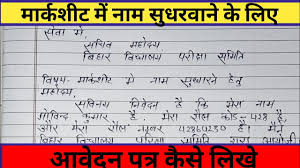 मार्कशीट में नाम सुधरवाने के लिए
सेवा में,
सचिव महोदय
बिहार विद्यालय परीक्षा समिति
विषय- मार्कशीट में नाम सुधारने हेतु
महोदय,
सविनय निवेदन है कि मेरा नाम
गोविन्द कुमार है. मेरा रोल कोड 428 है.
और मेरा रोल नम्बर है। मैंने
बिहार विद्यालय
आवेदन पत्र कैसे लिखे